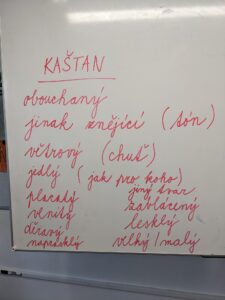 KAŠTAN
obouchaný
jinak znějící (tón)
větrový (chuť)
jedlý (jak pro koho)
jiný tvar
placatý
zablácený
vlnitý
lesklý
děravý
velký/malý
naprasklý